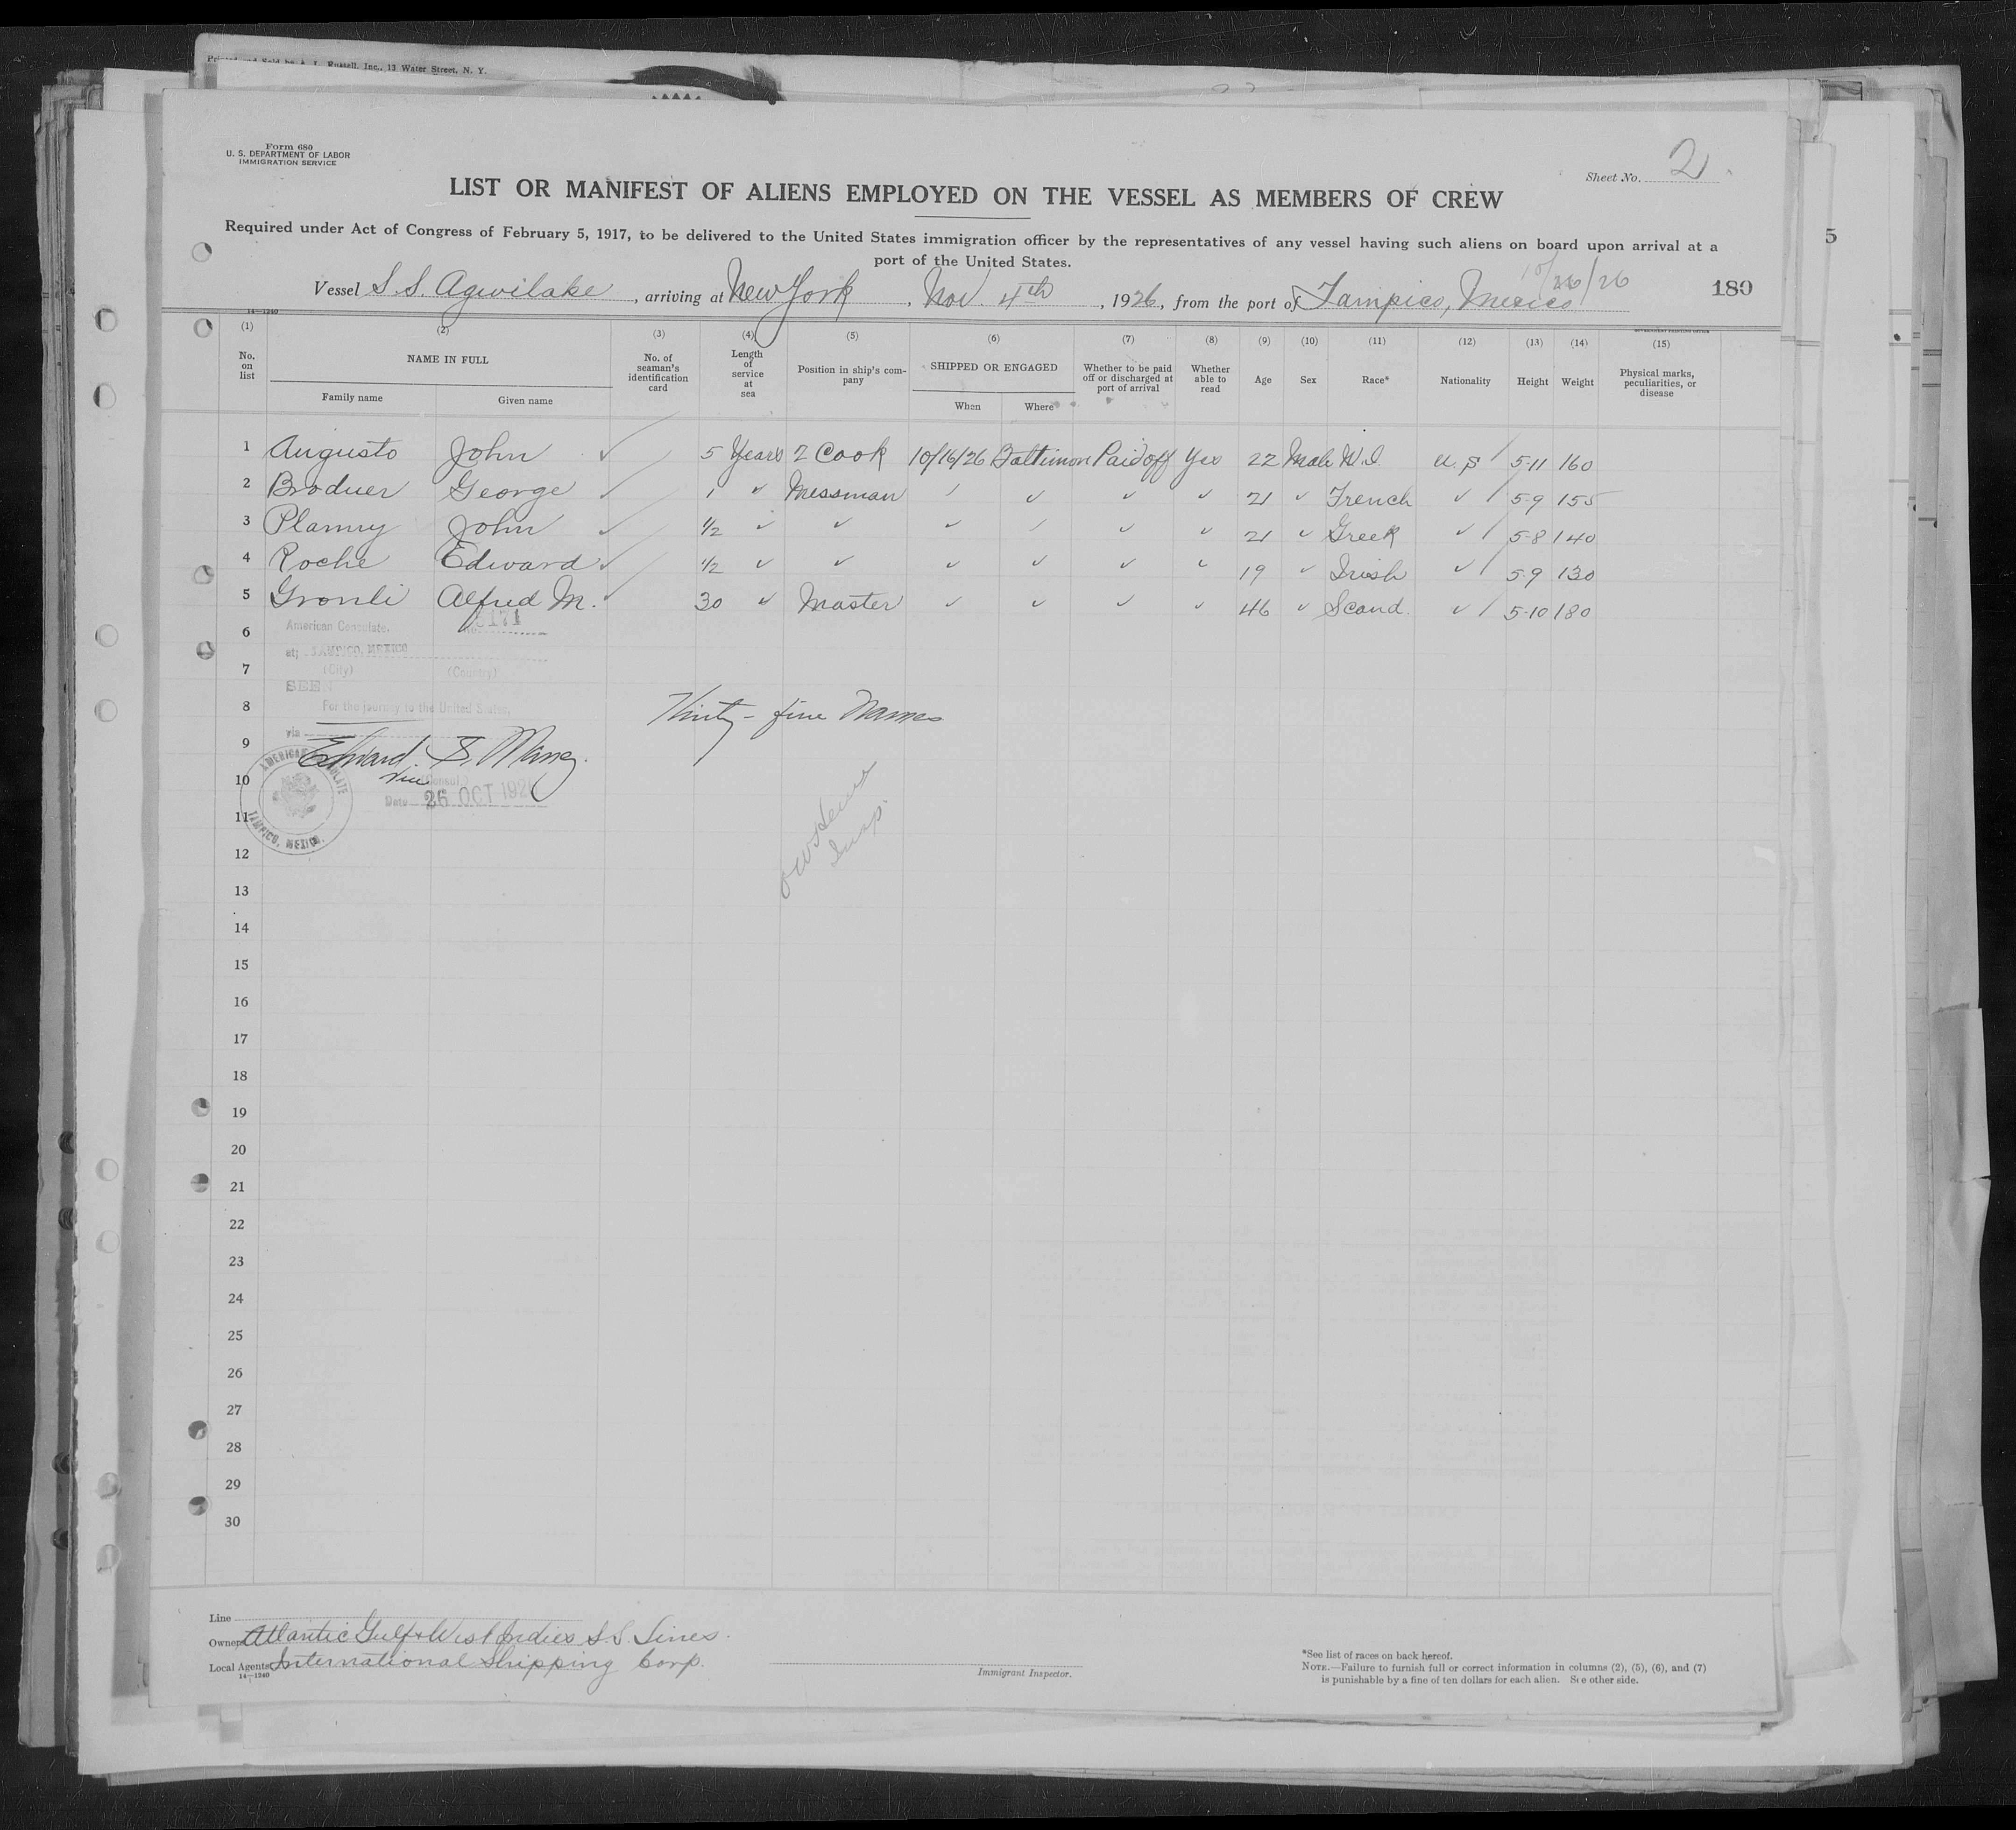 Printed and Sold by A. L. Russell, Inc., 13 Water Street, N. Y.
Form 680
U. S. DEPARTMENT OF LABOR
IMMIGRATION SERVICE
Sheet No. 2
LIST OR MANIFEST OF ALIENS EMPLOYED ON THE VESSEL AS MEMBERS OF CREW
Required under Act of Congress of February 5, 1917, to be delivered to the United States immigration officer by the representatives of any vessel having such aliens on board upon arrival at a
port of the United States.
5
10/26/26
Vessel S.S. Agwilake, arriving at New York, Nov. 4th, 1926, from the port of Tampico, Mexico
180
14—1240
GOVERNMENT PRINTING OFFICE
(1) (2) (3) (4) (5) (6) (7) (8) (9) (10) (11) (12) (13) (14) (15)
No. on list
NAME IN FULL
Family name
Given name
No. of seaman's identification card
Length of service at sea
Position in ship's company
SHIPPED OR ENGAGED
When
Where
Whether to be paid off or discharged at port of arrival
Whether able to read
Age
Sex
Race*
Nationality
Height
Weight
Physical marks, peculiarities, or disease
1 Augusto John ✓ 5 Years 2 Cook 10/16/26 Baltimore Paid off Yes 22 Male W.I. U.S / 5-11 160
2 Broduer George ✓ 1 ✓ Messman ✓ ✓ ✓ ✓ 21 ✓ French ✓ / 5-9 155
3 Planny John ✓ 1/2 ✓ ✓ ✓ ✓ ✓ ✓ 21 ✓ Greek ✓ / 5-8 140
4 Roche Edward ✓ 1/2 ✓ ✓ ✓ ✓ ✓ ✓ 19 ✓ Irish ✓ / 5-9 130
5 Gronli Alfred M. ✓ 30 ✓ Master ✓ ✓ ✓ ✓ 46 ✓ Scand. ✓ / 5-10 180
American Consulate,
6
at TAMPICO, MEXICO
7
(City) (Country)
SEEN
8
For the journey to the United States,
Thirty-five Names
via
9
Edward S. Maney
Vice Consul
10
Date 26 OCT 1926
AMERICAN CONSULATE
TAMPICO, MEXICO.
11
12
Insp.
13
14
15
16
17
18
19
20
21
22
23
24
25
26
27
28
29
30
Line
Owners Atlantic Gulf & West Indies S.S. Lines.
Local Agents International Shipping Corp.
14—1240
Immigrant Inspector.
*See list of races on back hereof.
NOTE.—Failure to furnish full or correct information in columns (2), (5), (6), and (7)
is punishable by a fine of ten dollars for each alien. See other side.